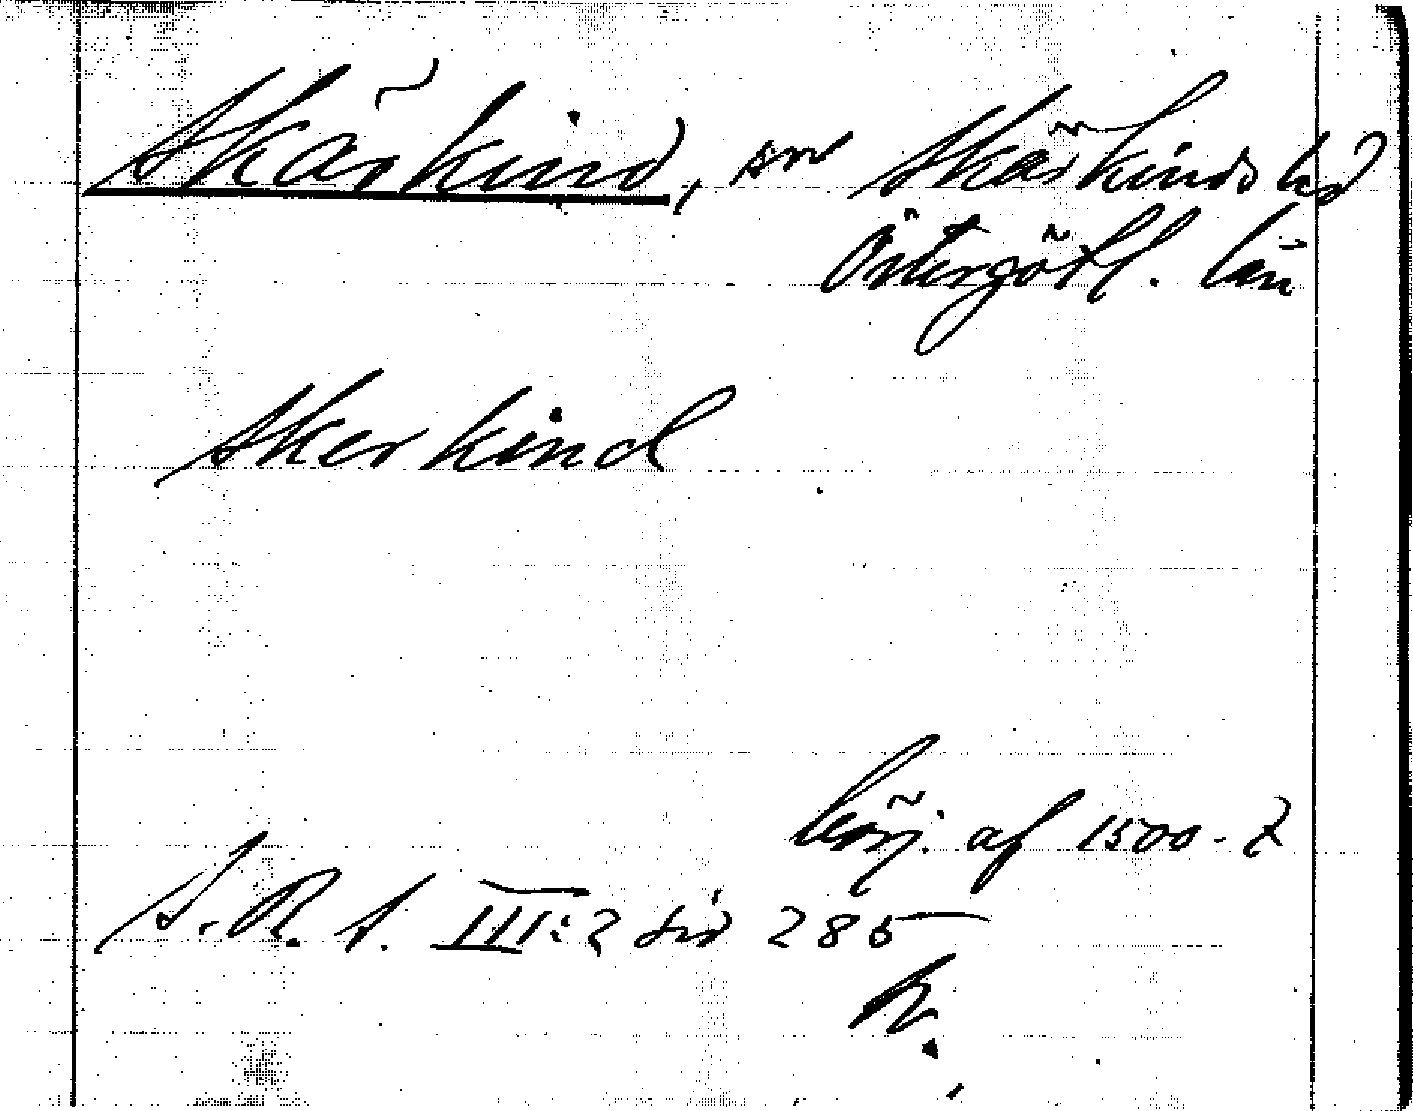 Skärkind, sn Skärkinds hd
Östergötl. län
Skerkind
börj. af 1500-t
S. R. S. III:2 sid 285